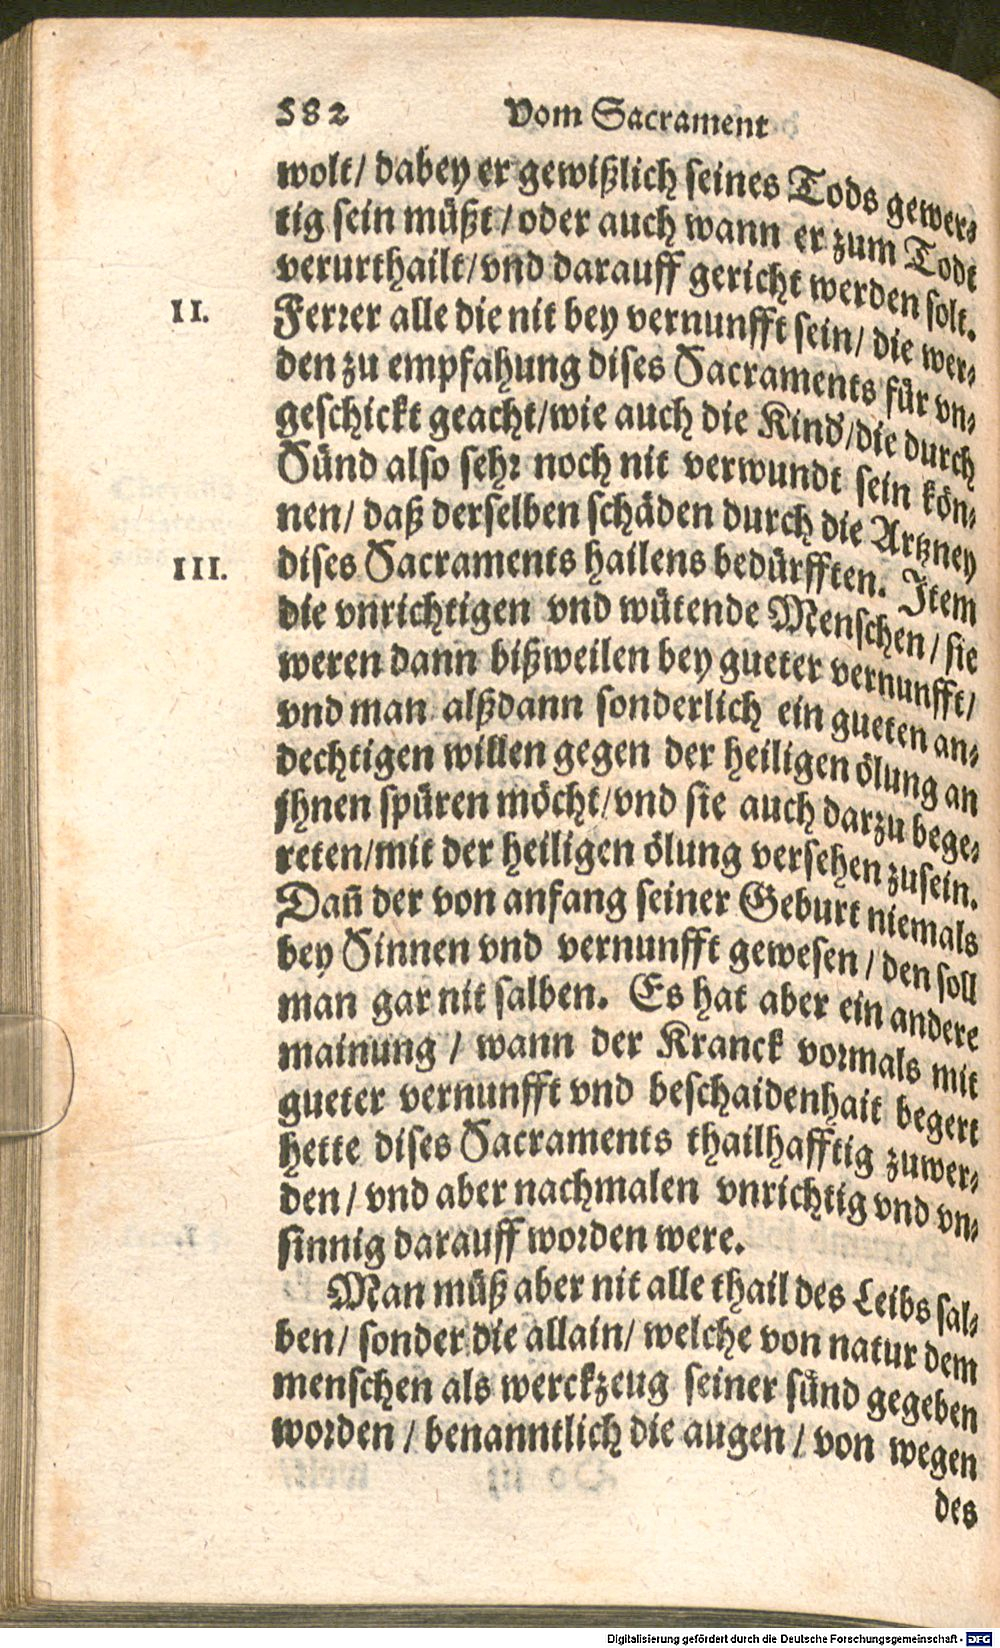 582 Vom Sacrament
wolt/ dabey er gewißlich seines Tods gewer-
tig sein müßt/ oder auch wann er zum Todt
verurthailt/ vnd darauff gericht werden solt.
II. Ferrer alle die nit bey vernunfft sein/ die wer-
den zu empfahung dises Sacraments für vn-
geschickt geacht/ wie auch die Kind/ die durch
Sünd also sehr noch nit verwundt sein kön-
nen/ daß derselben schäden durch die Artzney
III. dises Sacraments hailens bedürfften. Item
die vnrichtigen vnd wütende Menschen/ sie
weren dann bißweilen bey gueter vernunfft/
vnd man alßdann sonderlich ein gueten an-
dechtigen willen gegen der heiligen ölung an
jhnen spüren möcht/ vnd sie auch darzu bege-
reten/ mit der heiligen ölung versehen zusein.
Dañ der von anfang seiner Geburt niemals
bey Sinnen vnd vernunfft gewesen/ den soll
man gar nit salben. Es hat aber ein andere
mainung/ wann der Kranck vormals mit
gueter vernunfft vnd beschaidenhait begert
hette dises Sacraments thailhafftig zuwer-
den/ vnd aber nachmalen vnrichtig vnd vn-
sinnig darauff worden were.
Man müß aber nit alle thail des Leibs sal-
ben/ sonder die allain/ welche von natur dem
menschen als werckzeug seiner sünd gegeben
worden/ benanntlich die augen/ von wegen
des
Digitalisierung gefördert durch die Deutsche Forschungsgemeinschaft - DFG